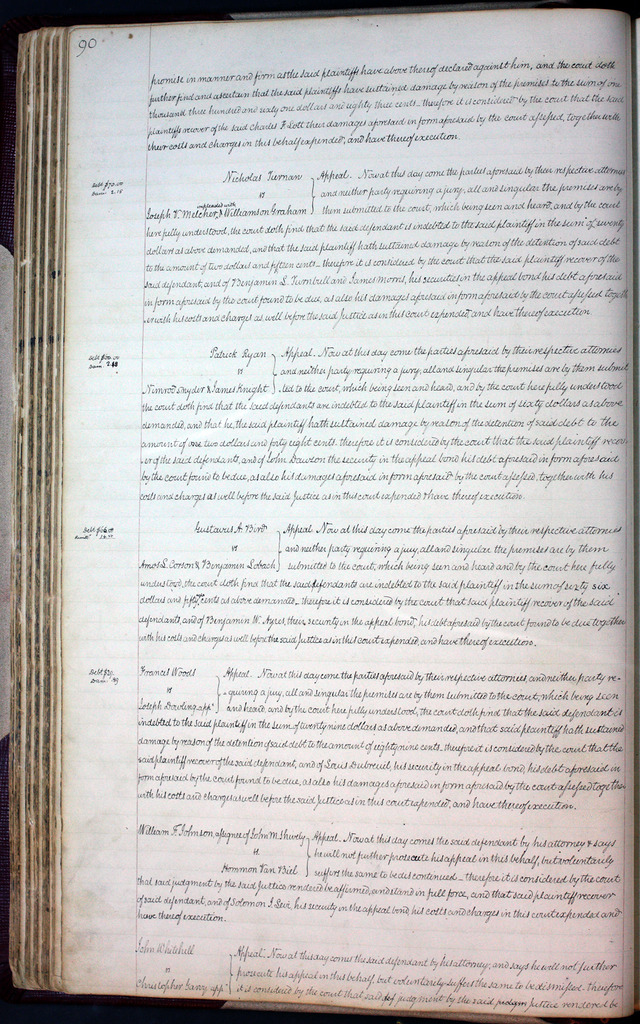 90
promise in manner and form as the said plaintiffs have above thereof declared against him, and the court doth
further find and ascertain that the said plaintiffs have sustained damage by reason of the premises to the sum of one
thousand three hundred and sixty one dollars and eighty three cents therefore it is considered by the court that the said
plaintiffs recover of the said Charles F. Lott their damages aforesaid in form aforesaid by the court assessed, together with
their costs and charges in this behalf expended, and have thereof execution.
Debt $70.00
Dam 2.15
Nicholas Tiernan
vs
Joseph V. Melcher, impleaded with Williamson Graham
Appeal. Now at this day come the parties aforesaid by their respective attornies
and neither party requiring a jury, all and singular the premises are by
them submitted to the court, which being seen and heard, and by the court
here fully understood, the court doth find that the said defendant is indebted to the said plaintiff in the sum of seventy
dollars as above demanded, and that the said plaintiff hath sustained damage by reason of the detention of said debt
to the amount of two dollars and fifteen cents – therefore it is considered by the court that the said plaintiff recover of the
said defendant, and of Benjamin L. Turnbull and James Morris, his securities in the appeal bond his debt aforesaid
in form aforesaid by the court found to be due, as also his damages aforesaid in form aforesaid by the court assessed together
with his costs and charges as well before the said Justice as in this court expended, and have thereof execution.
Debt $60.00
Dam 2.48
Patrick Ryan
vs
Nimrod Snyder & James Knight
Appeal. Now at this day come the parties aforesaid by their respective attornies
and neither party requiring a jury, all and singular the premises are by them submit
ted to the court, which being seen and heard, and by the court here fully understood
the court doth find that the said defendants are indebted to the said plaintiff in the sum of sixty dollars as above
demanded, and that he, the said plaintiff hath sustained damage by reason of the detention of said debt to the
amount of one two dollars and forty eight cents. therefore it is considered by the court that the said plaintiff recov
er of the said defendants, and of John Dawson the security in the appeal bond his debt aforesaid in form aforesaid
by the court found to be due, as also his damages aforesaid in form aforesaid by the court assessed, together with his
costs and charges as well before the said Justice as in this court expended & have thereof execution.
Gustavus A. Bird
vs
Amos L. Corson & Benjamin Lobach
Appeal Now at this day come the parties aforesaid by their respective attornies
and neither party requiring a jury, all and singular the premises are by them
submitted to the court, which being seen and heard and by the court here fully
understood, the court doth find that the said defendants are indebted to the said plaintiff in the sum of sixty six
dollars and fifty cents as above demanded – therefore it is considered by the court that said plaintiff recover of the said
defendants, and of Benjamin W. Ayres, their security in the appeal bond, his debt aforesaid by the court found to be due together
with his costs and charges as well before the said Justice as in this court expended, and have thereof execution.
Debt $29.
Dam .89
Francis Woods
vs
Joseph Dowling appt
Appeal. Now at this day come the parties aforesaid by their respective attornies, and neither party re-
quiring a jury, all and singular the premises are by them submitted to the court, which being seen
and heard, and by the court here fully understood, the court doth find that the said defendant is
indebted to the said plaintiff in the sum of twenty nine dollars as above demanded, and that said plaintiff hath sustained
damage by reason of the detention of said debt to the amount of eighty nine cents. therefore it is considered by the court that the
said plaintiff recover of the said defendant, and of Louis Dubreuil, his security in the appeal bond, his debt aforesaid in
form aforesaid by the court found to be due, as also his damages aforesaid in form aforesaid by the court assessed together
with his costs and charges as well before the said Justice as in this court expended, and have thereof execution.
William F. Johnson, assignee of John M. Shively
vs
Hommon Van Biel
Appeal. Now at this day comes the said defendant by his attorney & says
he will not further prosecute his appeal in this behalf, but voluntarily
suffers the same to be discontinued – therefore it is considered by the court
that said judgment by the said Justice rendered be affirmed, and stand in full force, and that said plaintiff recover
of said defendant, and of Solomon J. Levi, his security in the appeal bond his costs and charges in this court expended and
have thereof execution.
John Whitehill
vs
Christopher Garvy appt
Appeal. Now at this day comes the said defendant by his attorney, and says he will not further
prosecute his appeal in this behalf, but voluntarily suffers the same to be dismissed. therefore
it is considered by the court that said judgment by the said Justice rendered be